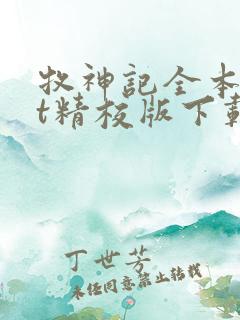 牧神記全本
t精校版下載
丁世芳
未经同意禁止转载